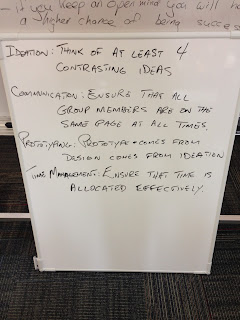 - if you keep an open mind you will ha
a higher chance of being success
IDEATION: THINK OF AT LEAST 4
CONTRASTING IDEAS
COMMUNICATION: ENSURE THAT ALL
GROUP MEMBERS ARE ON THE
SAME PAGE AT ALL TIMES.
PROTOTYPING: PROTOTYPE COMES FROM
DESIGN COMES FROM IDEATION
TIME MANAGEMENT: ENSURE THAT TIME IS
ALLOCATED EFFECTIVELY.